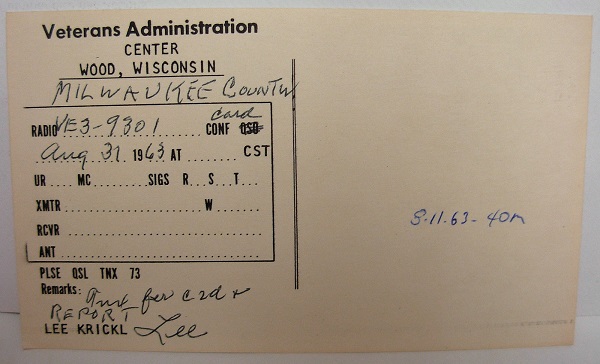 Veterans Administration
CENTER
WOOD, WISCONSIN
MILWAUKEE COUNTY
card
RADIO VE3-9801 CONF QSO
Aug 31 1963 AT ........ CST
UR .... MC ......... SIGS R... S... T...
XMTR ........................ W ........
RCVR ....................................
ANT .....................................
PLSE QSL TNX 73
Remarks: Tnx for crd &
REPORT
LEE KRICKL Lee
8-11-63-40m